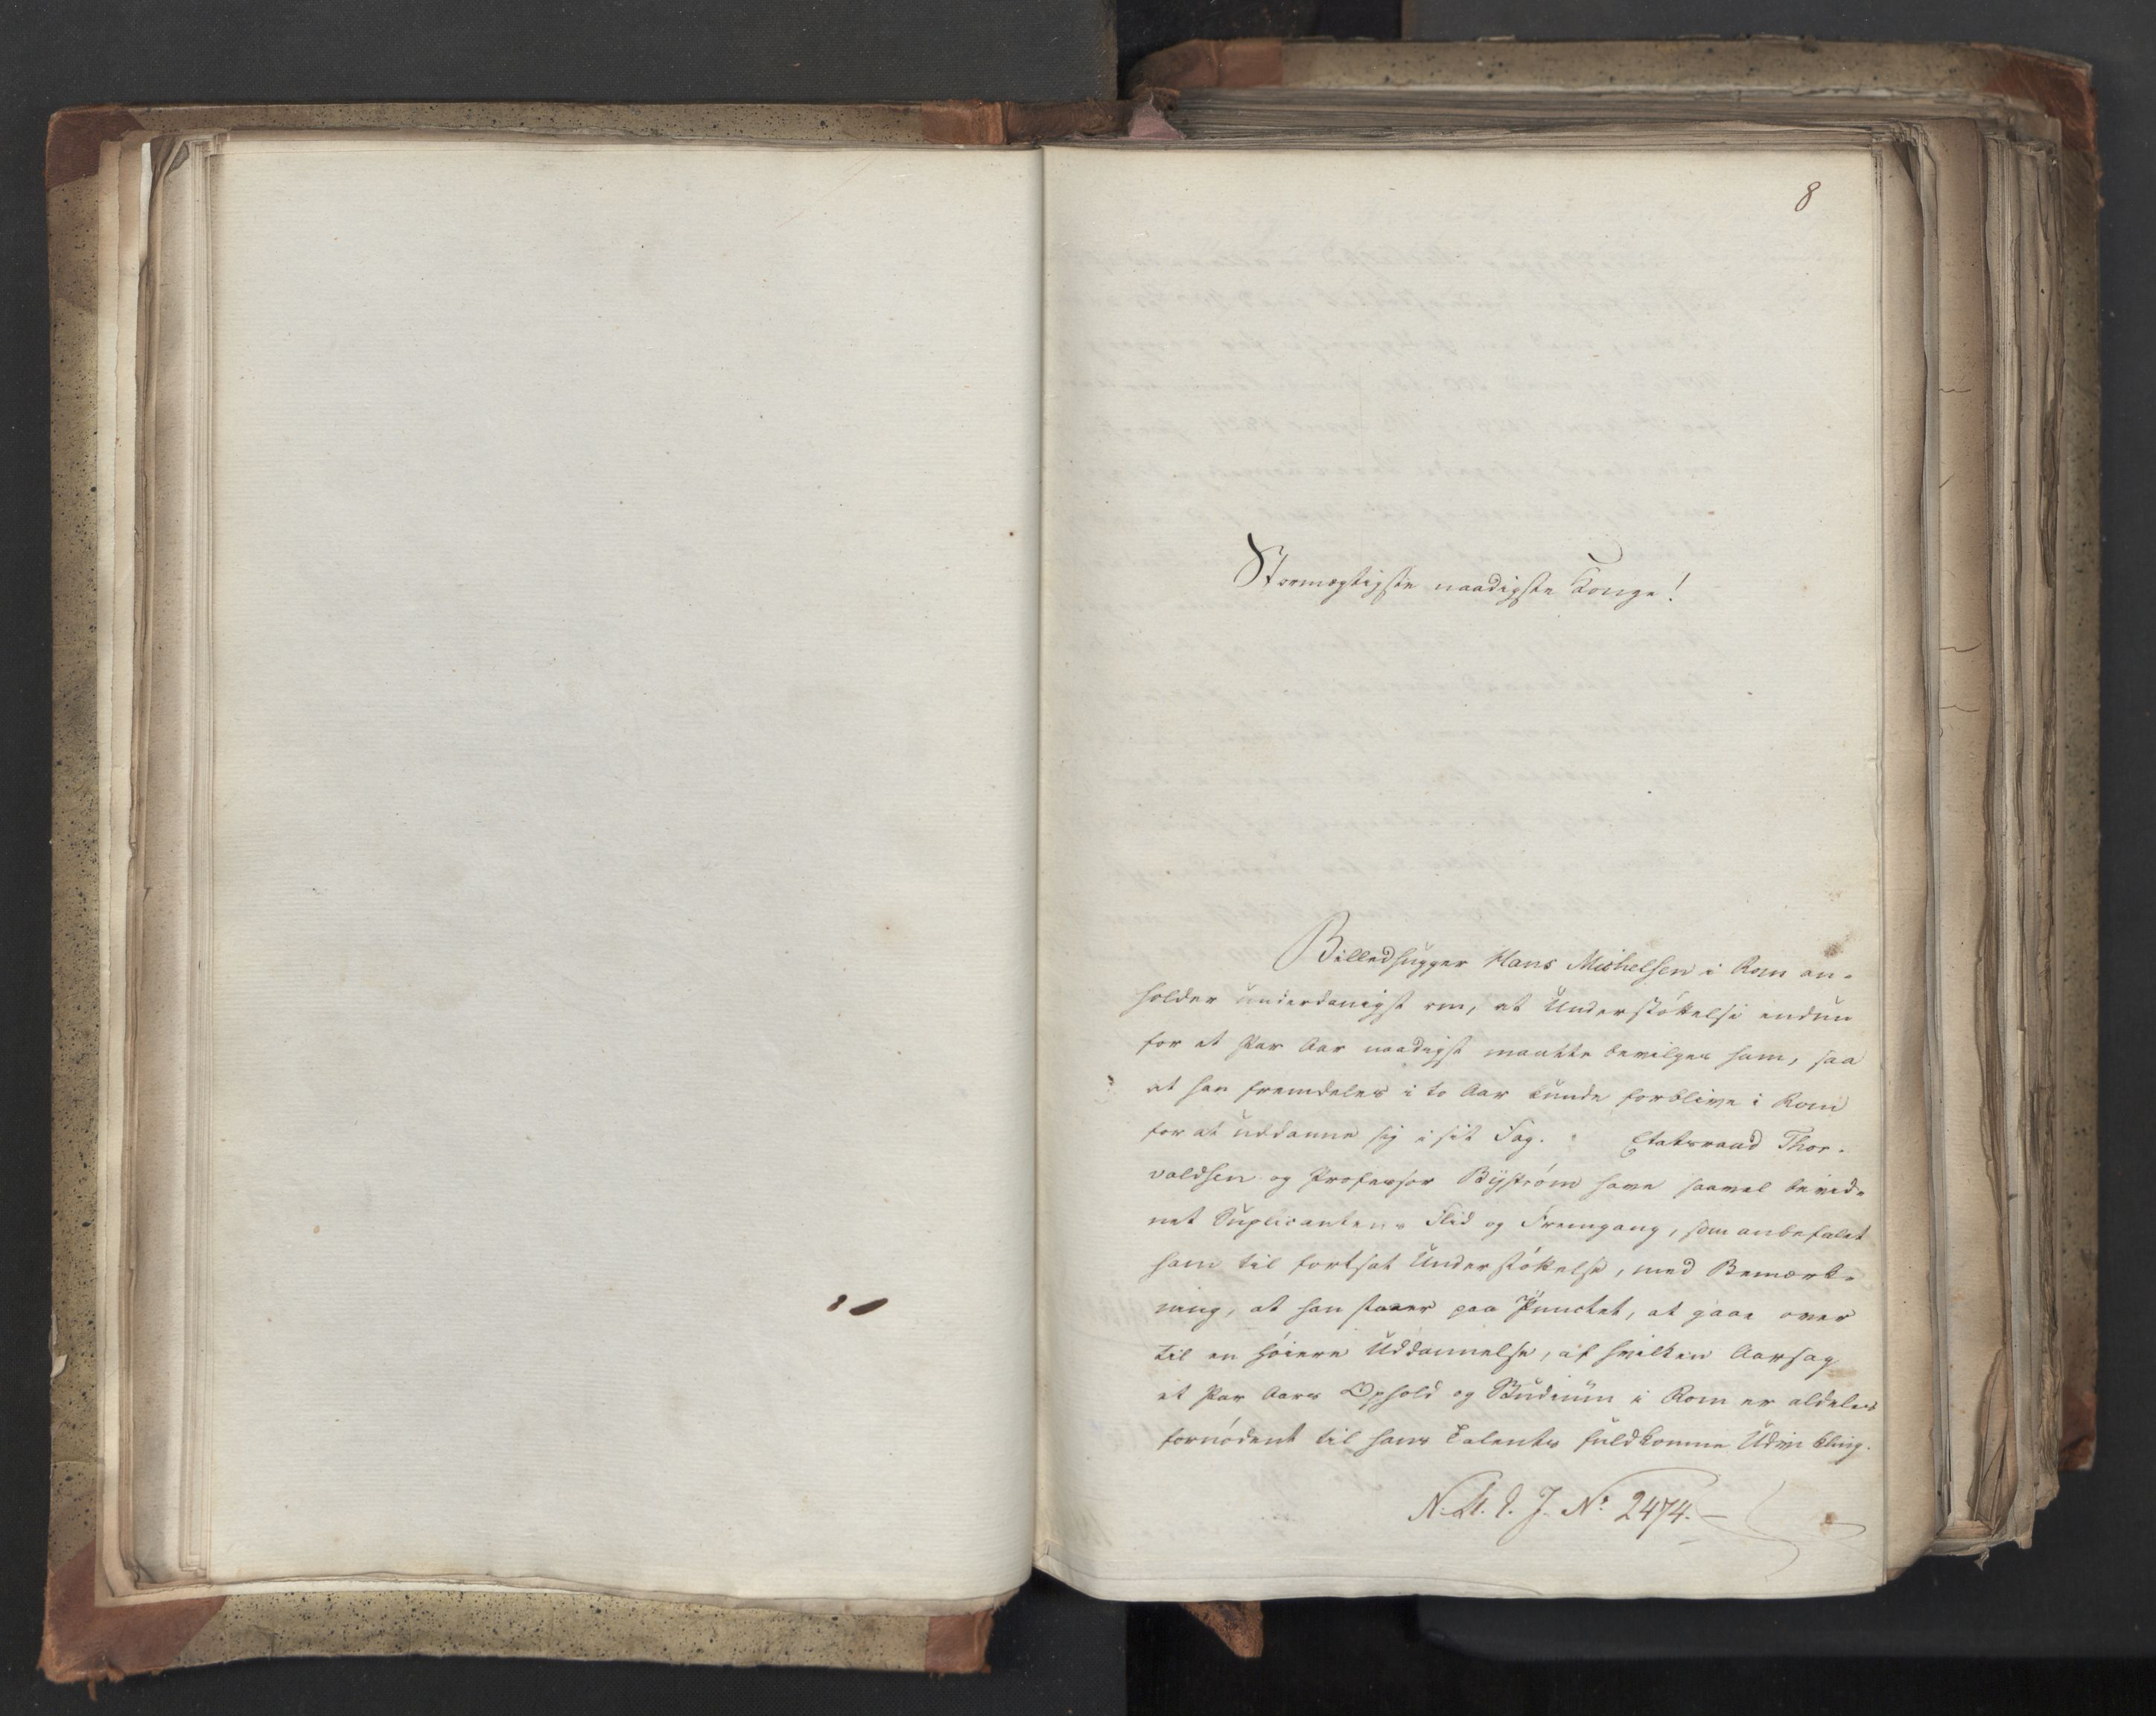 8
Stormægtigste naadigste Konge!
Billedhugger Hans Michelsen i Rom an-
holder underdanigst om, at Understöttelse endnu
for et Par Aar naadigst maatte bevilges ham, saa
at han fremdeles i to Aar kunde forblive i Rom
for at uddanne sig i sit Fag. Etatsraad Thor-
valdsen og Professor Byström have saavel bevid-
net Suplicantens Flid og Fremgang, som anbefalet
ham til fortsat Understöttelse, med Bemærk-
ning, at han staaer paa Punctet, at gaae over
til en höiere Uddannelse, af hvilken Aarsag
et Par Aars Ophold og Studium i Rom er aldeles
fornödent til hans Talents fuldkomne Udvikling.
J. No 2474.